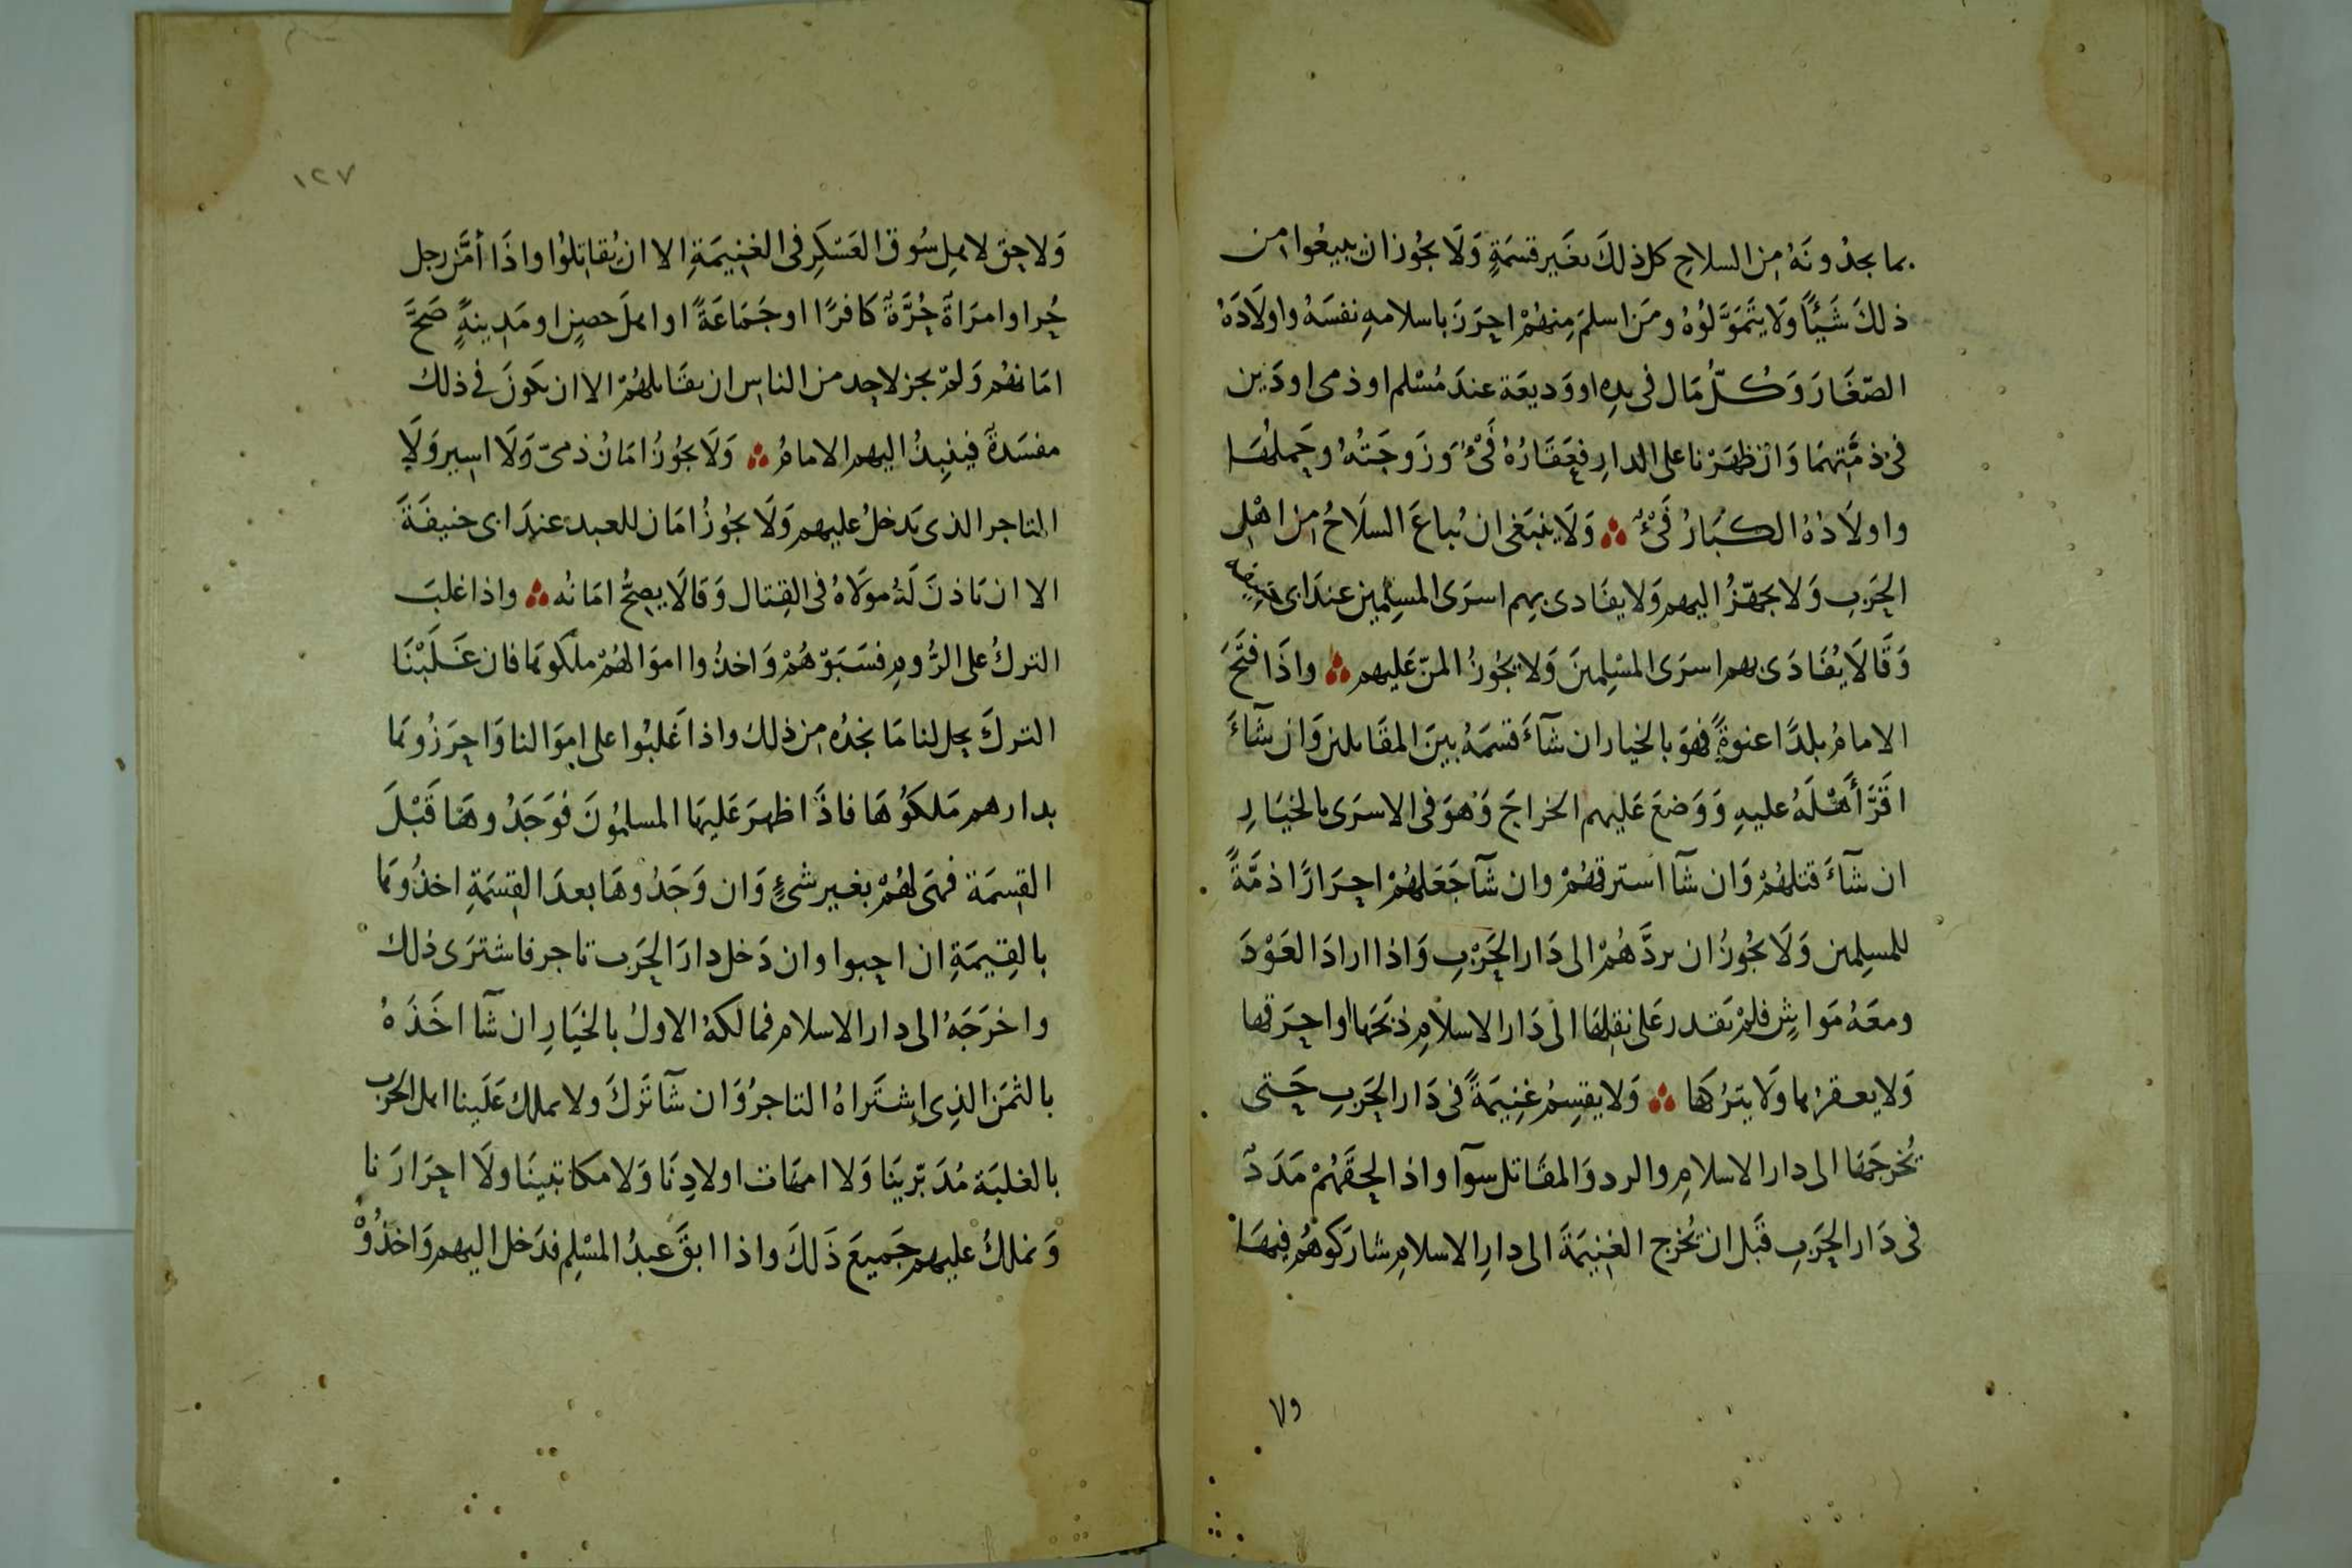 بما يجدُونَهُ من السلاحِ كل ذلكَ بغَير قسمَةٍ وَلَا يجُوز ان يبيعُوا من
ذلكَ شَيْئًا ولَا يتَمَوَّلوُهُ ومَن اسلمَ مِنهُمْ احرَزَ باسلامهِ نفسَهُ واولَادَهُ
الصّغَارَ وَكُلّ مَال فى يدِه او وَديعَة عندَ مُسْلم او ذمى او دَين
فى ذمَّتِهمَا وَان ظهَرْنا على الدارِ فعَقَارُهُ فَىْءٌ وَزَوجَتُهُ وحَملُهَا
واولَادُهُ الكبَارُ فَىْءٌ وَلَا ينبَغى ان يُباعَ السلَاحُ من اهْلِ
الحَربِ وَلا يجهّزُ اليهم وَلا يفَادى بهِم اسرَى المسلِمين عندَ ابى حنيفه
وَقَالَا يُفَادَى بهم اسرَى المسْلِمينَ وَلا يجُوزُ المنّ عَليهم واذَا فتَحَ
الامامُ بلدًا عنوةً فهوَ بالخيار ان شآءَ قسَمَهُ بينَ المقَاتلين وَان شآءَ
اقَرَّ أَهْلَهُ عليهِ وَوَضعَ عَليهم الخراجَ وَهُوَ فى الاسرَى بالخيَارِ
ان شآءَ قتلهُمْ وَان شآ استرقهُمْ وان شآ جَعَلهُمْ احرَارًا ذمَّةً
للمسلِمين وَلَا يجُوزُ ان يردَّهُمْ الى دَار الحَرْبِ وَاذا ارادَ العَوْدَ
ومعَهُ مَواشِ فلمْ يَقدر عَلى نقلِهَا الى دَار الاسلامِ ذبَحَهَا واحرَقها
وَلا يعقرُها ولَا يترُكَها وَلا يقسِمُ غنِيمَةً فى دَار الحَربِ حَتى
يُخرجَهَا الى دار الاسلامِ والردو وَالمقَاتل سوآ واذا لحِقَهُمْ مَدَدٌ
فى دَار الحَربِ قَبل ان يُخرج الغنِيمَةَ الى دارِ الاسلامِ شارَكوهُم فيهَا
ولا
١٢٧
وَلا حق لاهلِ سُوق العَسْكَرِ فى الغنِيمَةِ الا ان يُقاتِلُوا واذَا أمَّن رجل
حُر او امرَاةٌ حُرَّةٌ كَافرًا او جَمَاعَةً او اهلَ حصنٍ او مَدِينةٍ صَحَّ
امَانهُم وَلمْ يجز لاحد من الناسِ ان يقَاتلهُمْ الا ان يكونَ فى ذلك
مفسَدةٌ فينبِذُ اليهم الامامُ وَلَا يجُوزُ امَانُ ذمىّ وَلَا اسِير وَلَا
التاجر الذى يَدخلُ عليهم وَلَا يجُوزُ امَان للعبد عندَ ابى حنيفَةَ
الا ان يَاذنَ لَهُ مولَاهُ فى القِتال وَقالَا يصِحُّ امَانُه واذا غلبَ
التركُ على الرُّومِ فسَبَوْهُمْ وَاخذُوا اموَالهُمْ ملكوهَا فان غَلَبْنَا
التركَ يحل لنا مَا نجدُه من ذلِك واذا غَلبُوا على اموَالنا وَاحرَزُوهَا
بدارهم مَلكَوُهَا فاذَا ظهرَ عَليهَا المسلمُونَ فوَجَدُوهَا قَبْلَ
القِسمَة فهىَ لهُمْ بغير شىءٍ وَان وَجَدُوهَا بعدَ القِسْمَةِ اخذُوهَا
بالقِيمَةِ ان احبوا وان دَخل دارَ الحَرب تاجر فاشترَى ذلك
واخرَجَهُ الى دار الاسلام فمالكهُ الاولُ بالخيَارِ ان شآ اخَذَهُ
بالثمَن الذِى إشتَراهُ التاجرُ وَان شآ تَركَ ولا يملك عَلَينا اهل الحرب
بالغلبَة مُدَبّرينَا وَلا امهَات اولادِنَا وَلا مكاتبينَا ولَا احرَارَنا
وَنملكُ عليهم جَميعَ ذَلكَ واذا ابقَ عبدُ المسْلِم فدَخل اليهم وَاخذُوهُ